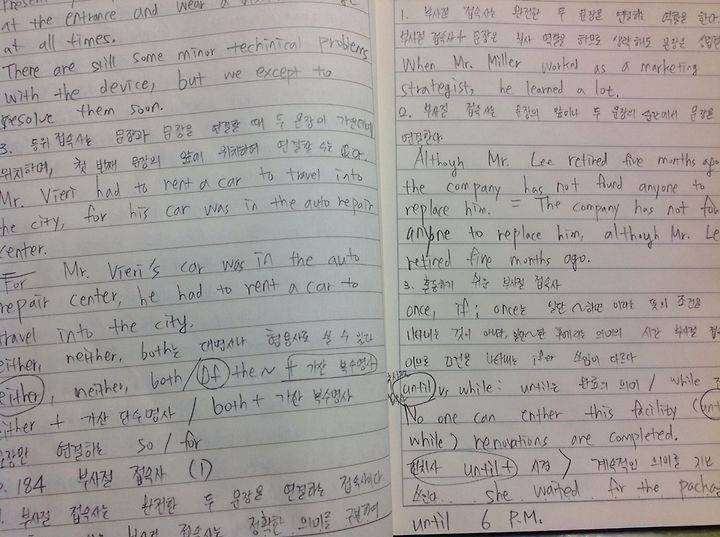 at the entrance and wear a
at all times.
There are still some minor techinical problems
with the device, but we except to
resolve them soon.
3. 등위 접속사는 문장과 문장을 연결할 때 두 문장의 가운데에
위치하며, 첫 번째 문장의 앞에 위치하여 연결할 수는 없다.
Mr. Vieri had to rent a car to travel into
the city, for his car was in the auto repair
center.
For Mr. Vieri's car was in the auto
repair center, he had to rent a car to
travel into the city.
either, neither, both는 대명사나 형용사로 쓸 수 있다
either, neither, both / of the ~ + 가산 복수명사
either + 가산 단수명사 / both + 가산 복수명사
문장만 연결하는 so / for
p. 184 부사절 접속사 (1)
1. 부사절 접속사는 완전한 두 문장을 연결하는 접속사이다
정확한 의미를 구분하여
1. 부사절 접속사는 완전한 두 문장을 연결하는 역할을 한다
부사절 접속사 + 문장은 부사 역할을 하므로 생략해도 문장은 성립
When Mr. Miller worked as a marketing
strategist, he learned a lot.
2. 부사절 접속사는 문장의 앞이나 두 문장의 중간에서 문장을
연결한다.
Although Mr. Lee retired five months ago
the company has not found anyone to
replace him. = The company has not fou
anyone to replace him, although Mr. Lee
retired five months ago.
3. 혼동하기 쉬운 부사절 접속사
once, if ; once는 일단 ~하면 이라는 뜻의 조건을
나타내는 것이 아니라, 일단 ~한 후에라는 의미의 시간 부사절 접속
이므로 조건을 나타내는 if와 쓰임이 다르다
until vs while : until는 완료의 의미 / while
No one can enther this facility (unt
while) renovations are completed.
전치사 until + 시점 > 계속적인 의미를 지
she waited for the packag
until 6 P.M.